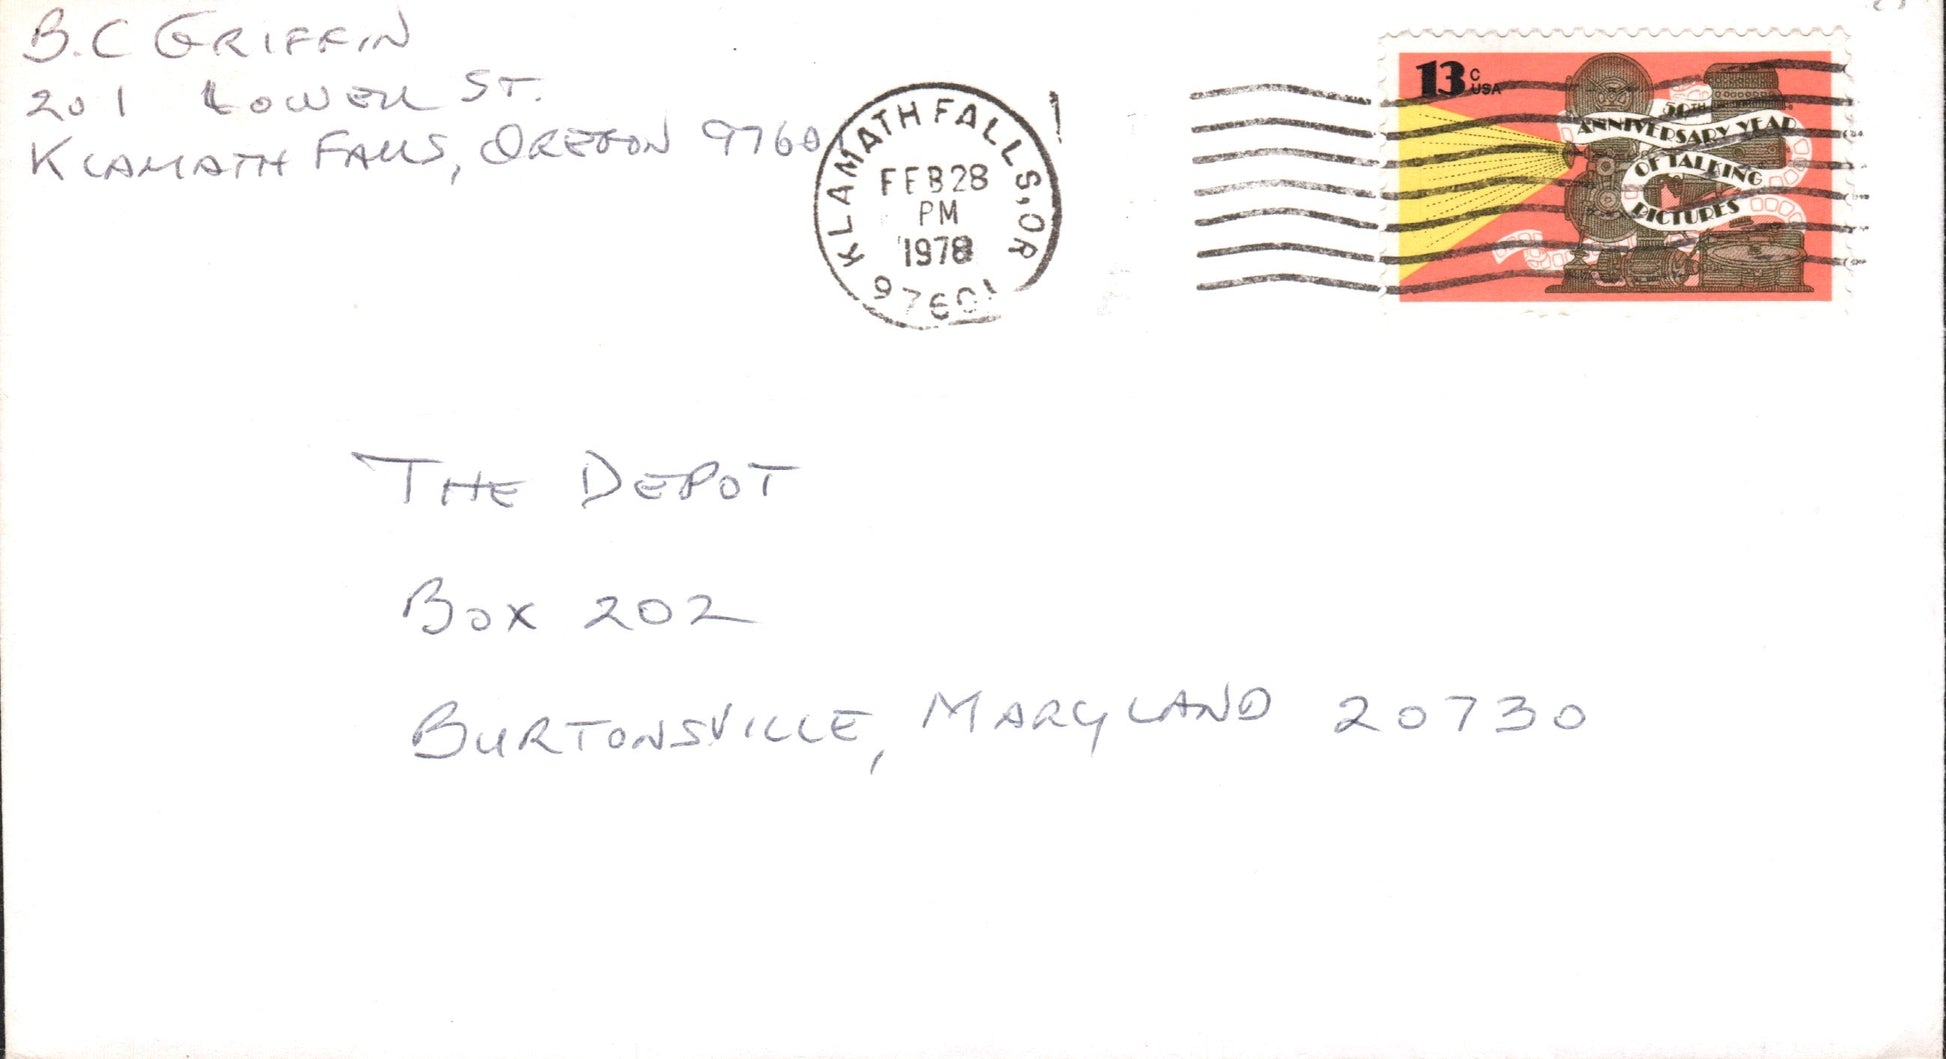 B.C GRIFFIN
201 LOWELL ST.
KLAMATH FALLS, OREGON 9760
KLAMATH FALLS, OR
FEB 28
PM
1978
97601
13c
USA
50TH
ANNIVERSARY YEAR
OF TALKING
PICTURES
THE DEPOT
BOX 202
BURTONSVILLE, MARYLAND 20730